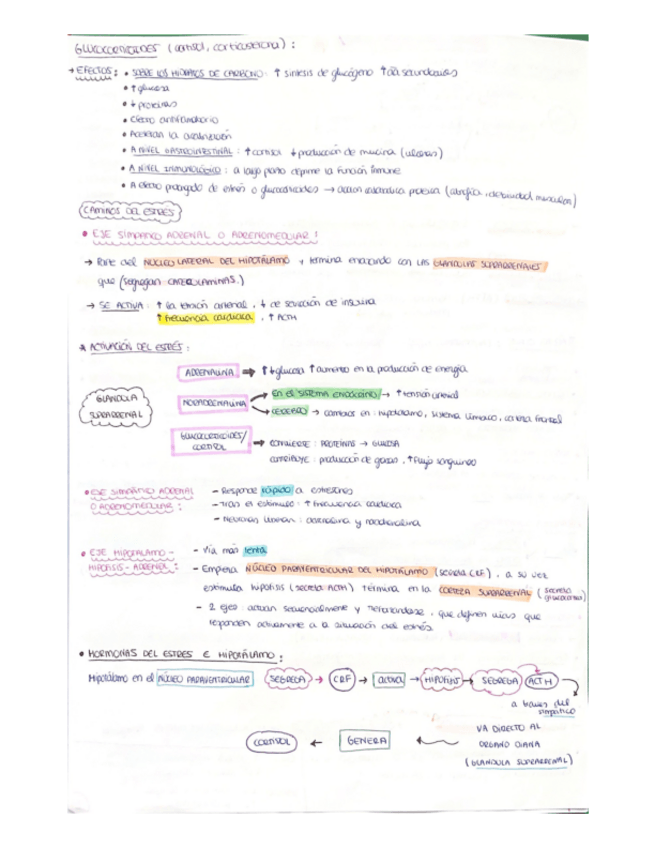 GLUCOCORTICOIDES (cortisol, corticosterona):
→ EFECTOS: • SOBRE LOS HIDRATOS DE CARBONO: ↑ síntesis de glucógeno
• ↑ glucosa
• ↓ proteínas
• Efecto antiinflamatorio
• Aceleran la
• A NIVEL GASTROINTESTINAL: ↑ cortisol ↓ producción de mucina (úlceras)
• A NIVEL INMUNOLÓGICO: a largo plazo deprime la función inmune
• A efecto prolongado de estrés o glucocorticoides → acción catabólica proteica (atrofia, debilidad muscular)
CAMINOS DEL ESTRÉS
• EJE SIMPÁTICO ADRENAL O ADRENOMEDULAR:
→ Parte del NÚCLEO LATERAL DEL HIPOTÁLAMO y termina enlazando con las GLÁNDULAS SUPRARRENALES
que (segregan CATECOLAMINAS.)
→ SE ACTIVA: ↑ la tensión arterial, ↓ de secreción de insulina
↑ frecuencia cardíaca, ↑ ACTH
ACTIVACIÓN DEL ESTRÉS:
ADRENALINA → glucosa ↑ aumento en la producción de energía
GLÁNDULA SUPRARRENAL
NORADRENALINA → EN EL SISTEMA ENDOCRINO → ↑ tensión arterial
→ CEREBRO → cambios en: hipotálamo, sistema límbico, corteza frontal
GLUCOCORTICOIDES/ CORTISOL → CONVIERTE: PROTEÍNAS → GLUCOSA
CONTRIBUYE: producción de grasas, ↑ flujo sanguíneo
• EJE SIMPÁTICO ADRENAL O ADRENOMEDULAR:
- Responde rápido a estresores
- Tras el estímulo: ↑ frecuencia cardíaca
- Neuronas liberan: adrenalina y noradrenalina
• EJE HIPOTÁLAMO - HIPÓFISIS - ADRENAL:
- Vía más lenta
- Empieza NÚCLEO PARAVENTRICULAR DEL HIPOTÁLAMO (secreta CRF), a su vez
estimula hipófisis (secreta ACTH) termina en la CORTEZA SUPRARRENAL (secreta glucocorticoides)
- 2 ejes: actúan secuencialmente y, que definen
responden activamente a la situación del estrés
• HORMONAS DEL ESTRÉS E HIPOTÁLAMO:
Hipotálamo en el NÚCLEO PARAVENTRICULAR SEGREGA → CRF → activa → HIPÓFISIS → SEGREGA ACTH
a través del simpático
VA DIRECTO AL
CORTISOL ← GENERA ← ÓRGANO DIANA
(GLÁNDULA SUPRARRENAL)